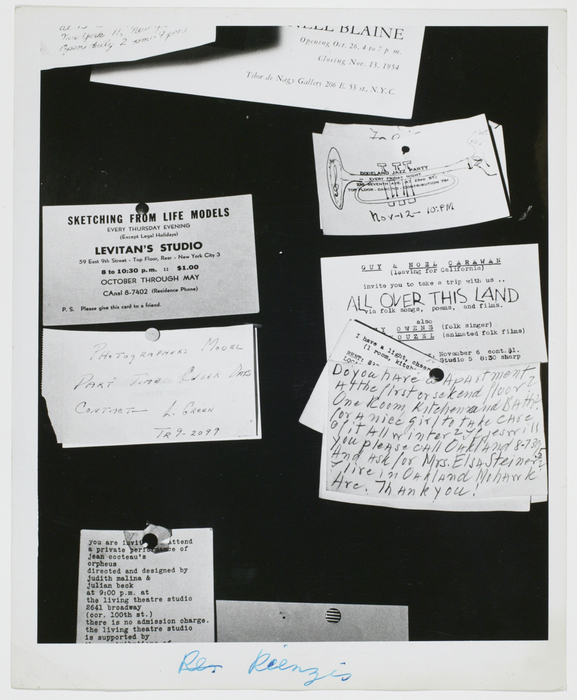 New York
Open daily 2
NELL BLAINE
Opening Oct. 26, 4 to 7 p.m.
Closing Nov. 13, 1954
Tibor de Nagy Gallery 206 E. 53 st., N.Y.C.
DIXIELAND JAZZ PARTY
EVERY FRIDAY NIGHT
TOP FLOOR
CONTRIBUTION 75¢
Nov-12- 10:PM
SKETCHING FROM LIFE MODELS
EVERY THURSDAY EVENING
(Except Legal Holidays)
LEVITAN'S STUDIO
59 East 9th Street - Top Floor, Rear - New York City 3
8 to 10:30 p.m. :: $1.00
OCTOBER THROUGH MAY
CAnal 8-7402 (Residence Phone)
P. S. Please give this card to a friend.
GUY & NOEL CARAWAN
(leaving for California)
invite you to take a trip with us ..
ALL OVER THIS LAND
via folk songs, poems, and films.
also
Y OWENS (folk singer)
OUZEL (animated folk films)
: November 6 cont. $1.
Studio 5 8:30 sharp
PHOTOGRAPHERS MODEL
PART TIME
CONTACT - L. GREEN
TR 9-2097
I have a light, cheer
(1 room, kitche
RENT: $
Do you have a Apartment
At the first or sekend floor 2
One Room Kitchen and Bath.
for a nice girl to take care
of it All winter 2 yeares will
you please call Oakland 8-78
And ask for Mrs. Elsa Steiner
I live in Oakland Mohawk
Are. Thank you!
you are invit attend
a private performance of
jean cocteau's
orpheus
directed and designed by
judith malina &
julian beck
at 9:00 p.m. at
the living theatre studio
2641 broadway
(cor. 100th st.)
there is no admission charge.
the living theatre studio
is supported by
Rev Rienzis